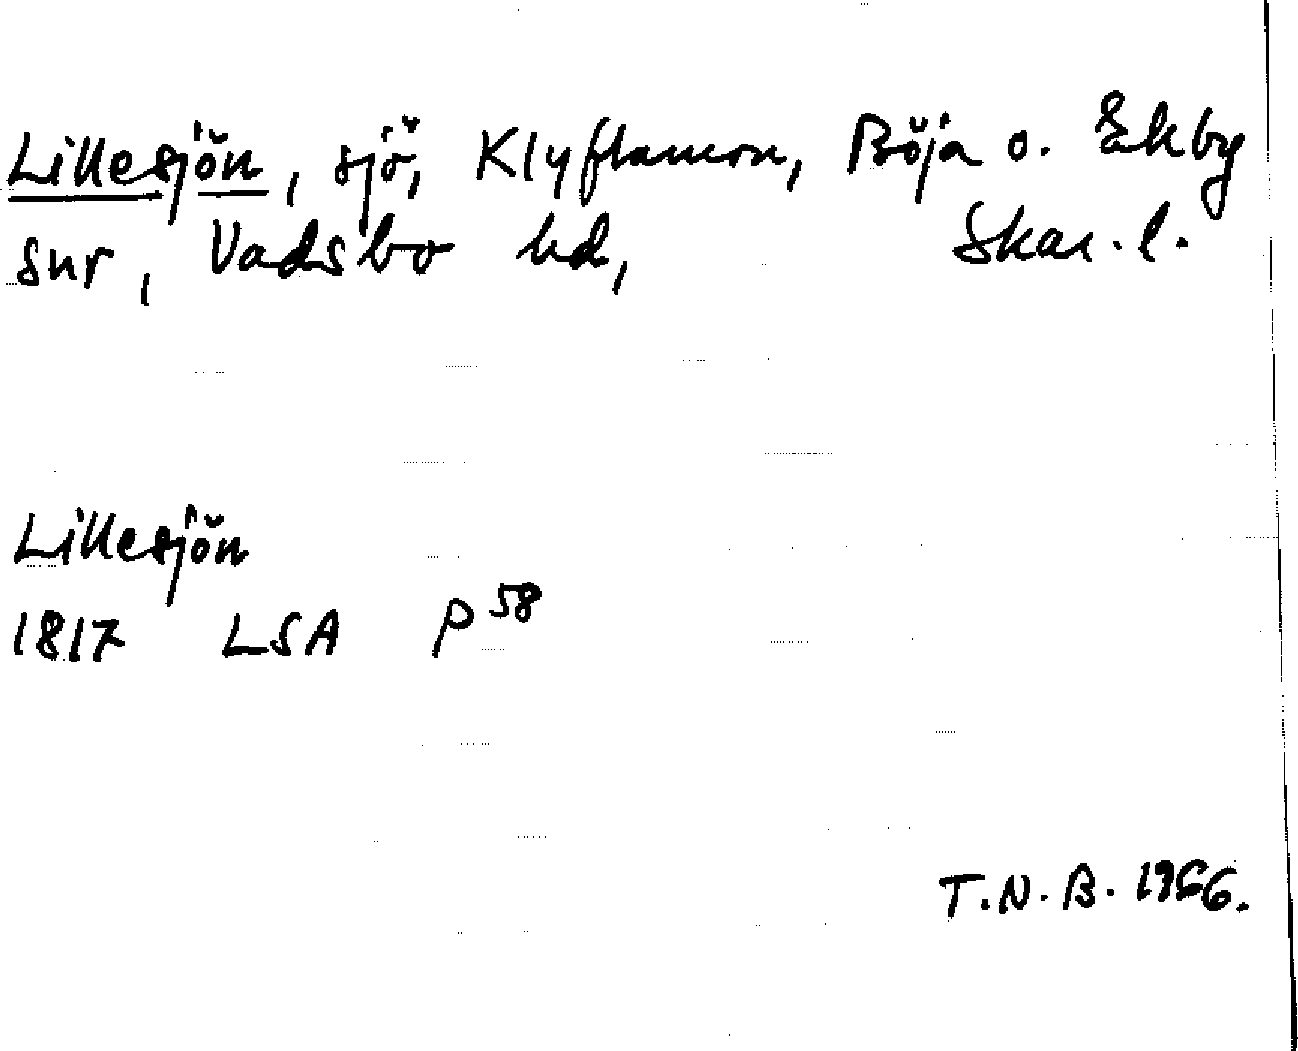 Lillesjön, sjö, Klyftamon, Böja o. Ekby
snr, Vadsbo hd, Skar. l.
Lillesjön
1817 LSA P 58
T.N.B. 1966.